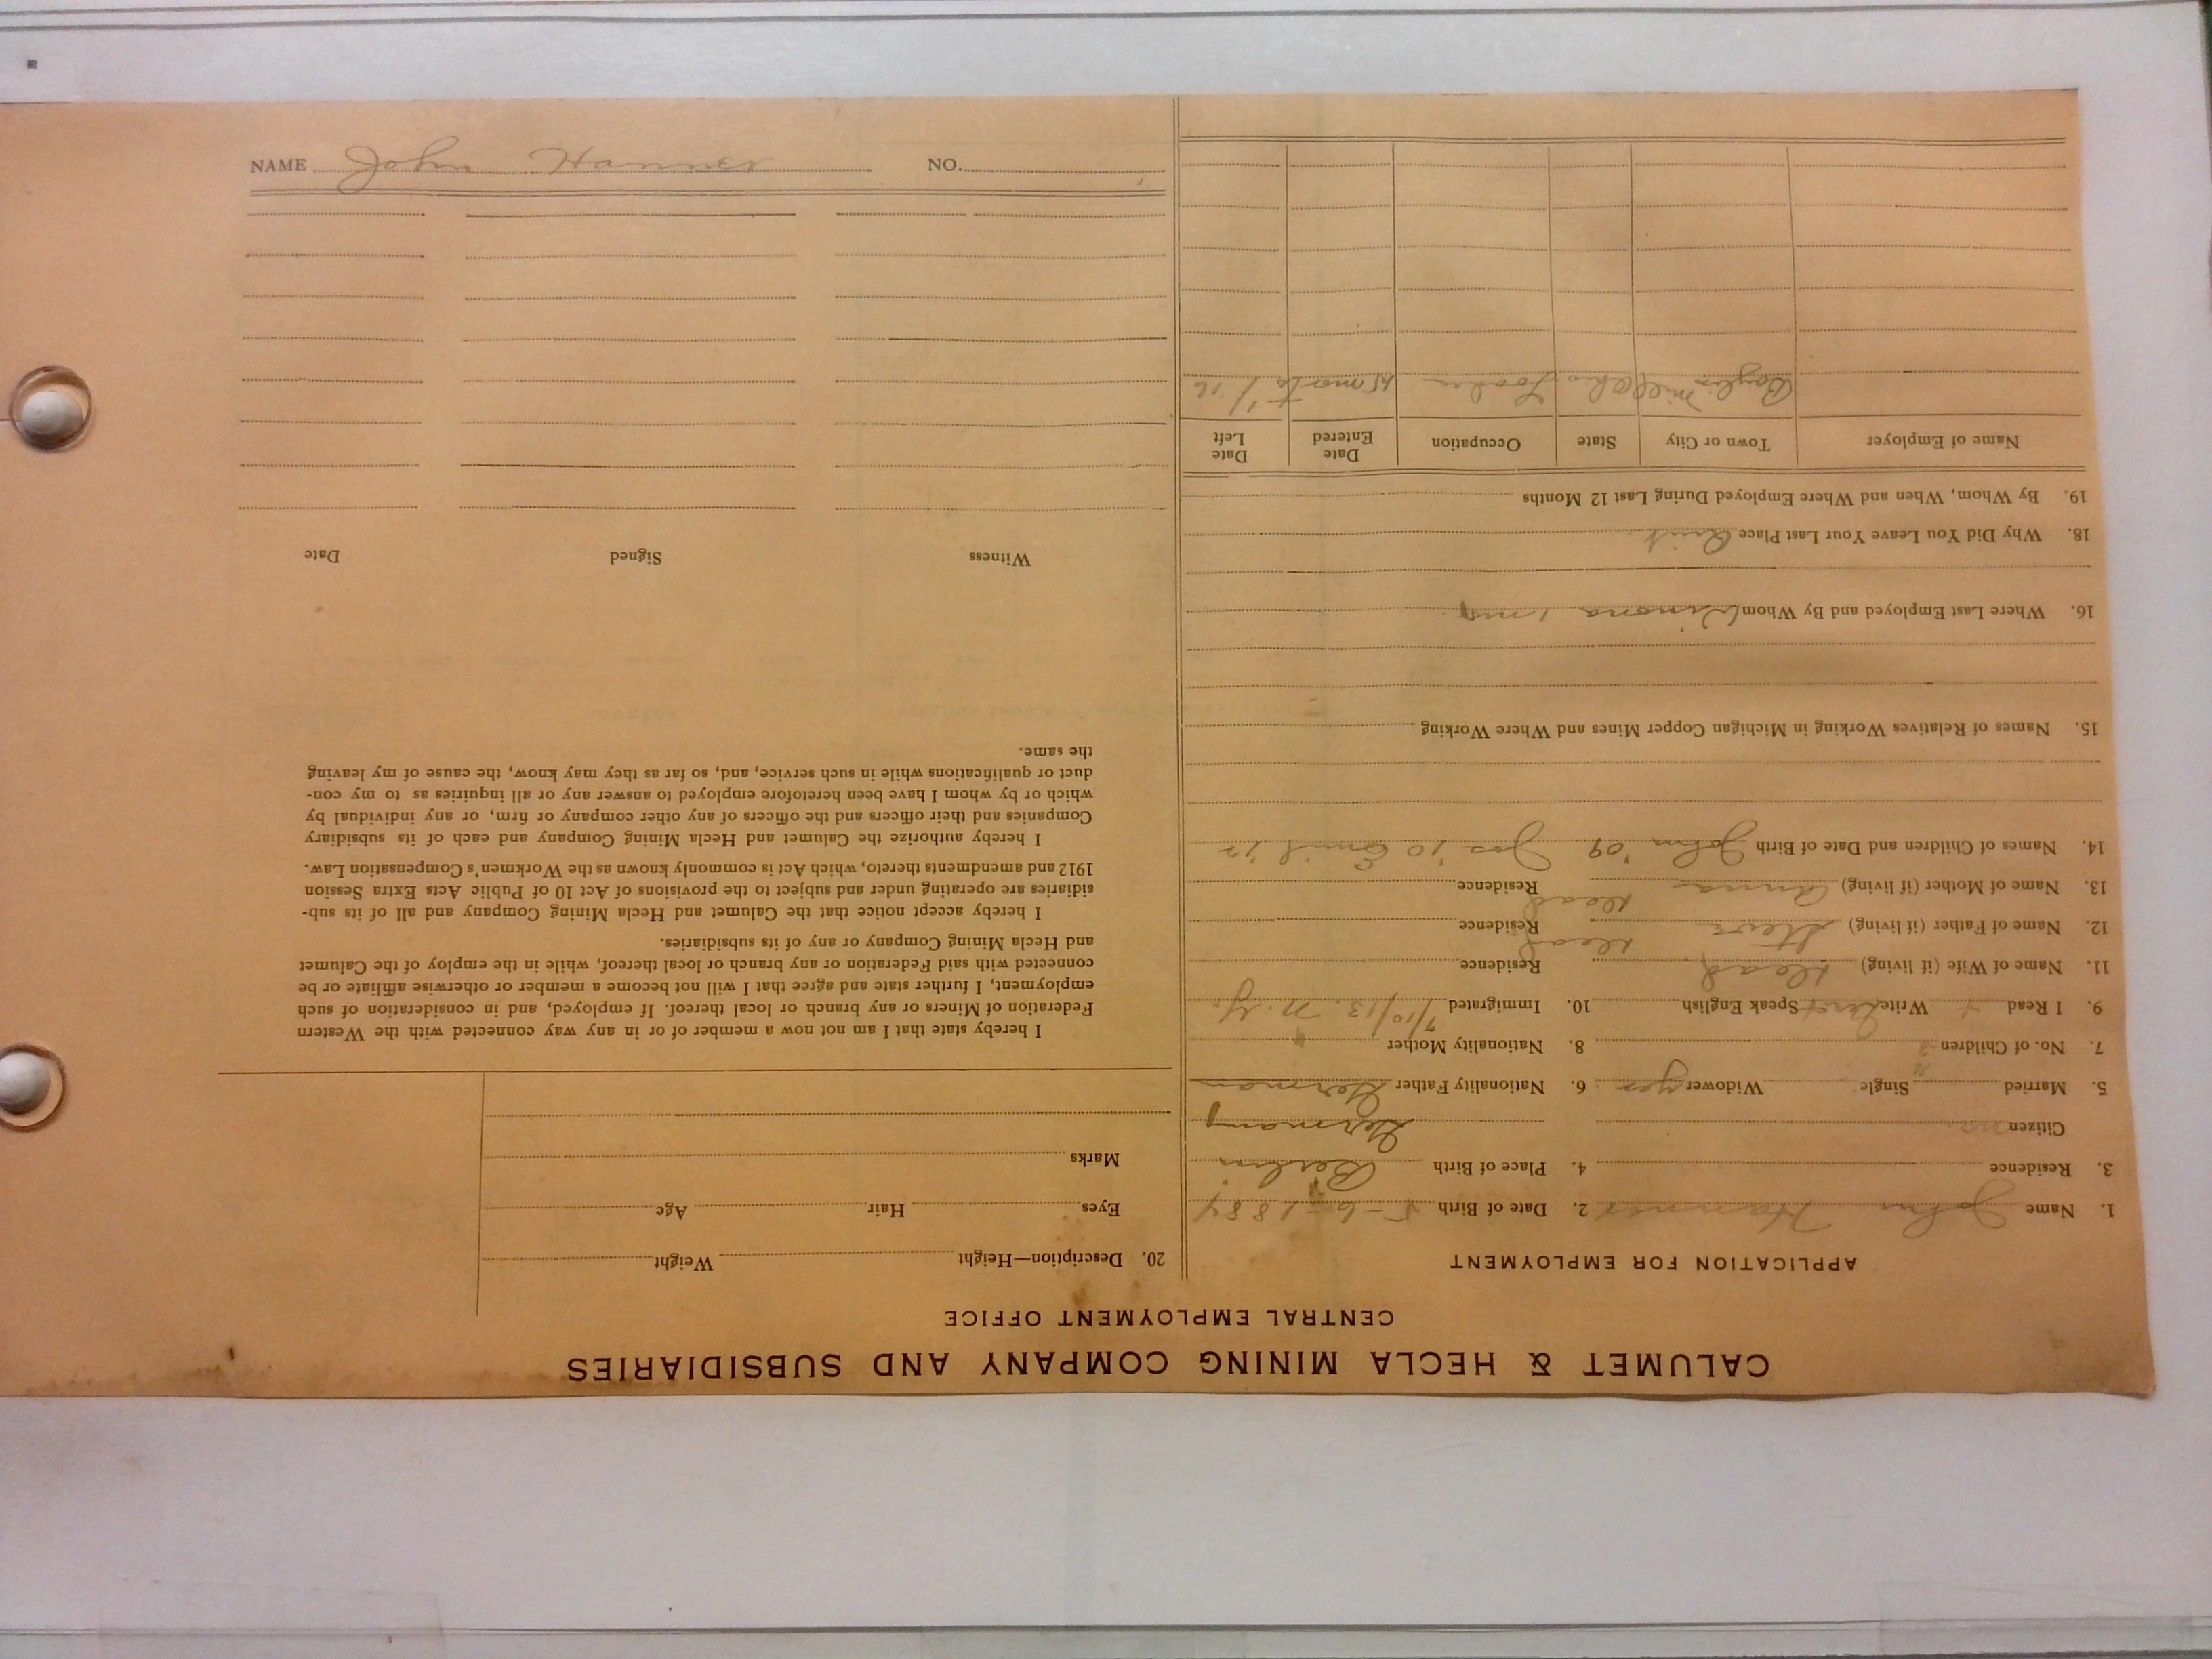 CALUMET & HECLA MINING COMPANY AND SUBSIDIARIES
CENTRAL EMPLOYMENT OFFICE
APPLICATION FOR EMPLOYMENT
1. Name John 2. Date of Birth 5-6-1884
3. Residence 4. Place of Birth Berlin
Citizen no. Germany
5. Married Single Widower yes 6. Nationality Father German
7. No. of Children 3 8. Nationality Mother "
9. I Read Write Speak English 10. Immigrated 7/10/13. N.Y.
11. Name of Wife (if living) Dead Residence
12. Name of Father (if living) Steve Dead Residence
13. Name of Mother (if living) Anna Dead Residence
14. Names of Children and Date of Birth John '09 Jos '10 Emil '12
15. Names of Relatives Working in Michigan Copper Mines and Where Working
16. Where Last Employed and By Whom Winona
18. Why Did You Leave Your Last Place Quit
19. By Whom, When and Where Employed During Last 12 Months
Name of Employer Town or City State Occupation Date Entered Date Left
mill 1/16
20. Description—Height Weight
Eyes Hair Age
Marks
I hereby state that I am not now a member of or in any way connected with the Western
Federation of Miners or any branch or local thereof. If employed, and in consideration of such
employment, I further state and agree that I will not become a member or otherwise affiliate or be
connected with said Federation or any branch or local thereof, while in the employ of the Calumet
and Hecla Mining Company or any of its subsidiaries.
I hereby accept notice that the Calumet and Hecla Mining Company and all of its sub-
sidiaries are operating under and subject to the provisions of Act 10 of Public Acts Extra Session
1912 and amendments thereto, which Act is commonly known as the Workmen's Compensation Law.
I hereby authorize the Calumet and Hecla Mining Company and each of its subsidiary
Companies and their officers and the officers of any other company or firm, or any individual by
which or by whom I have been heretofore employed to answer any or all inquiries as to my con-
duct or qualifications while in such service, and, so far as they may know, the cause of my leaving
the same.
Witness Signed Date
NAME John NO.